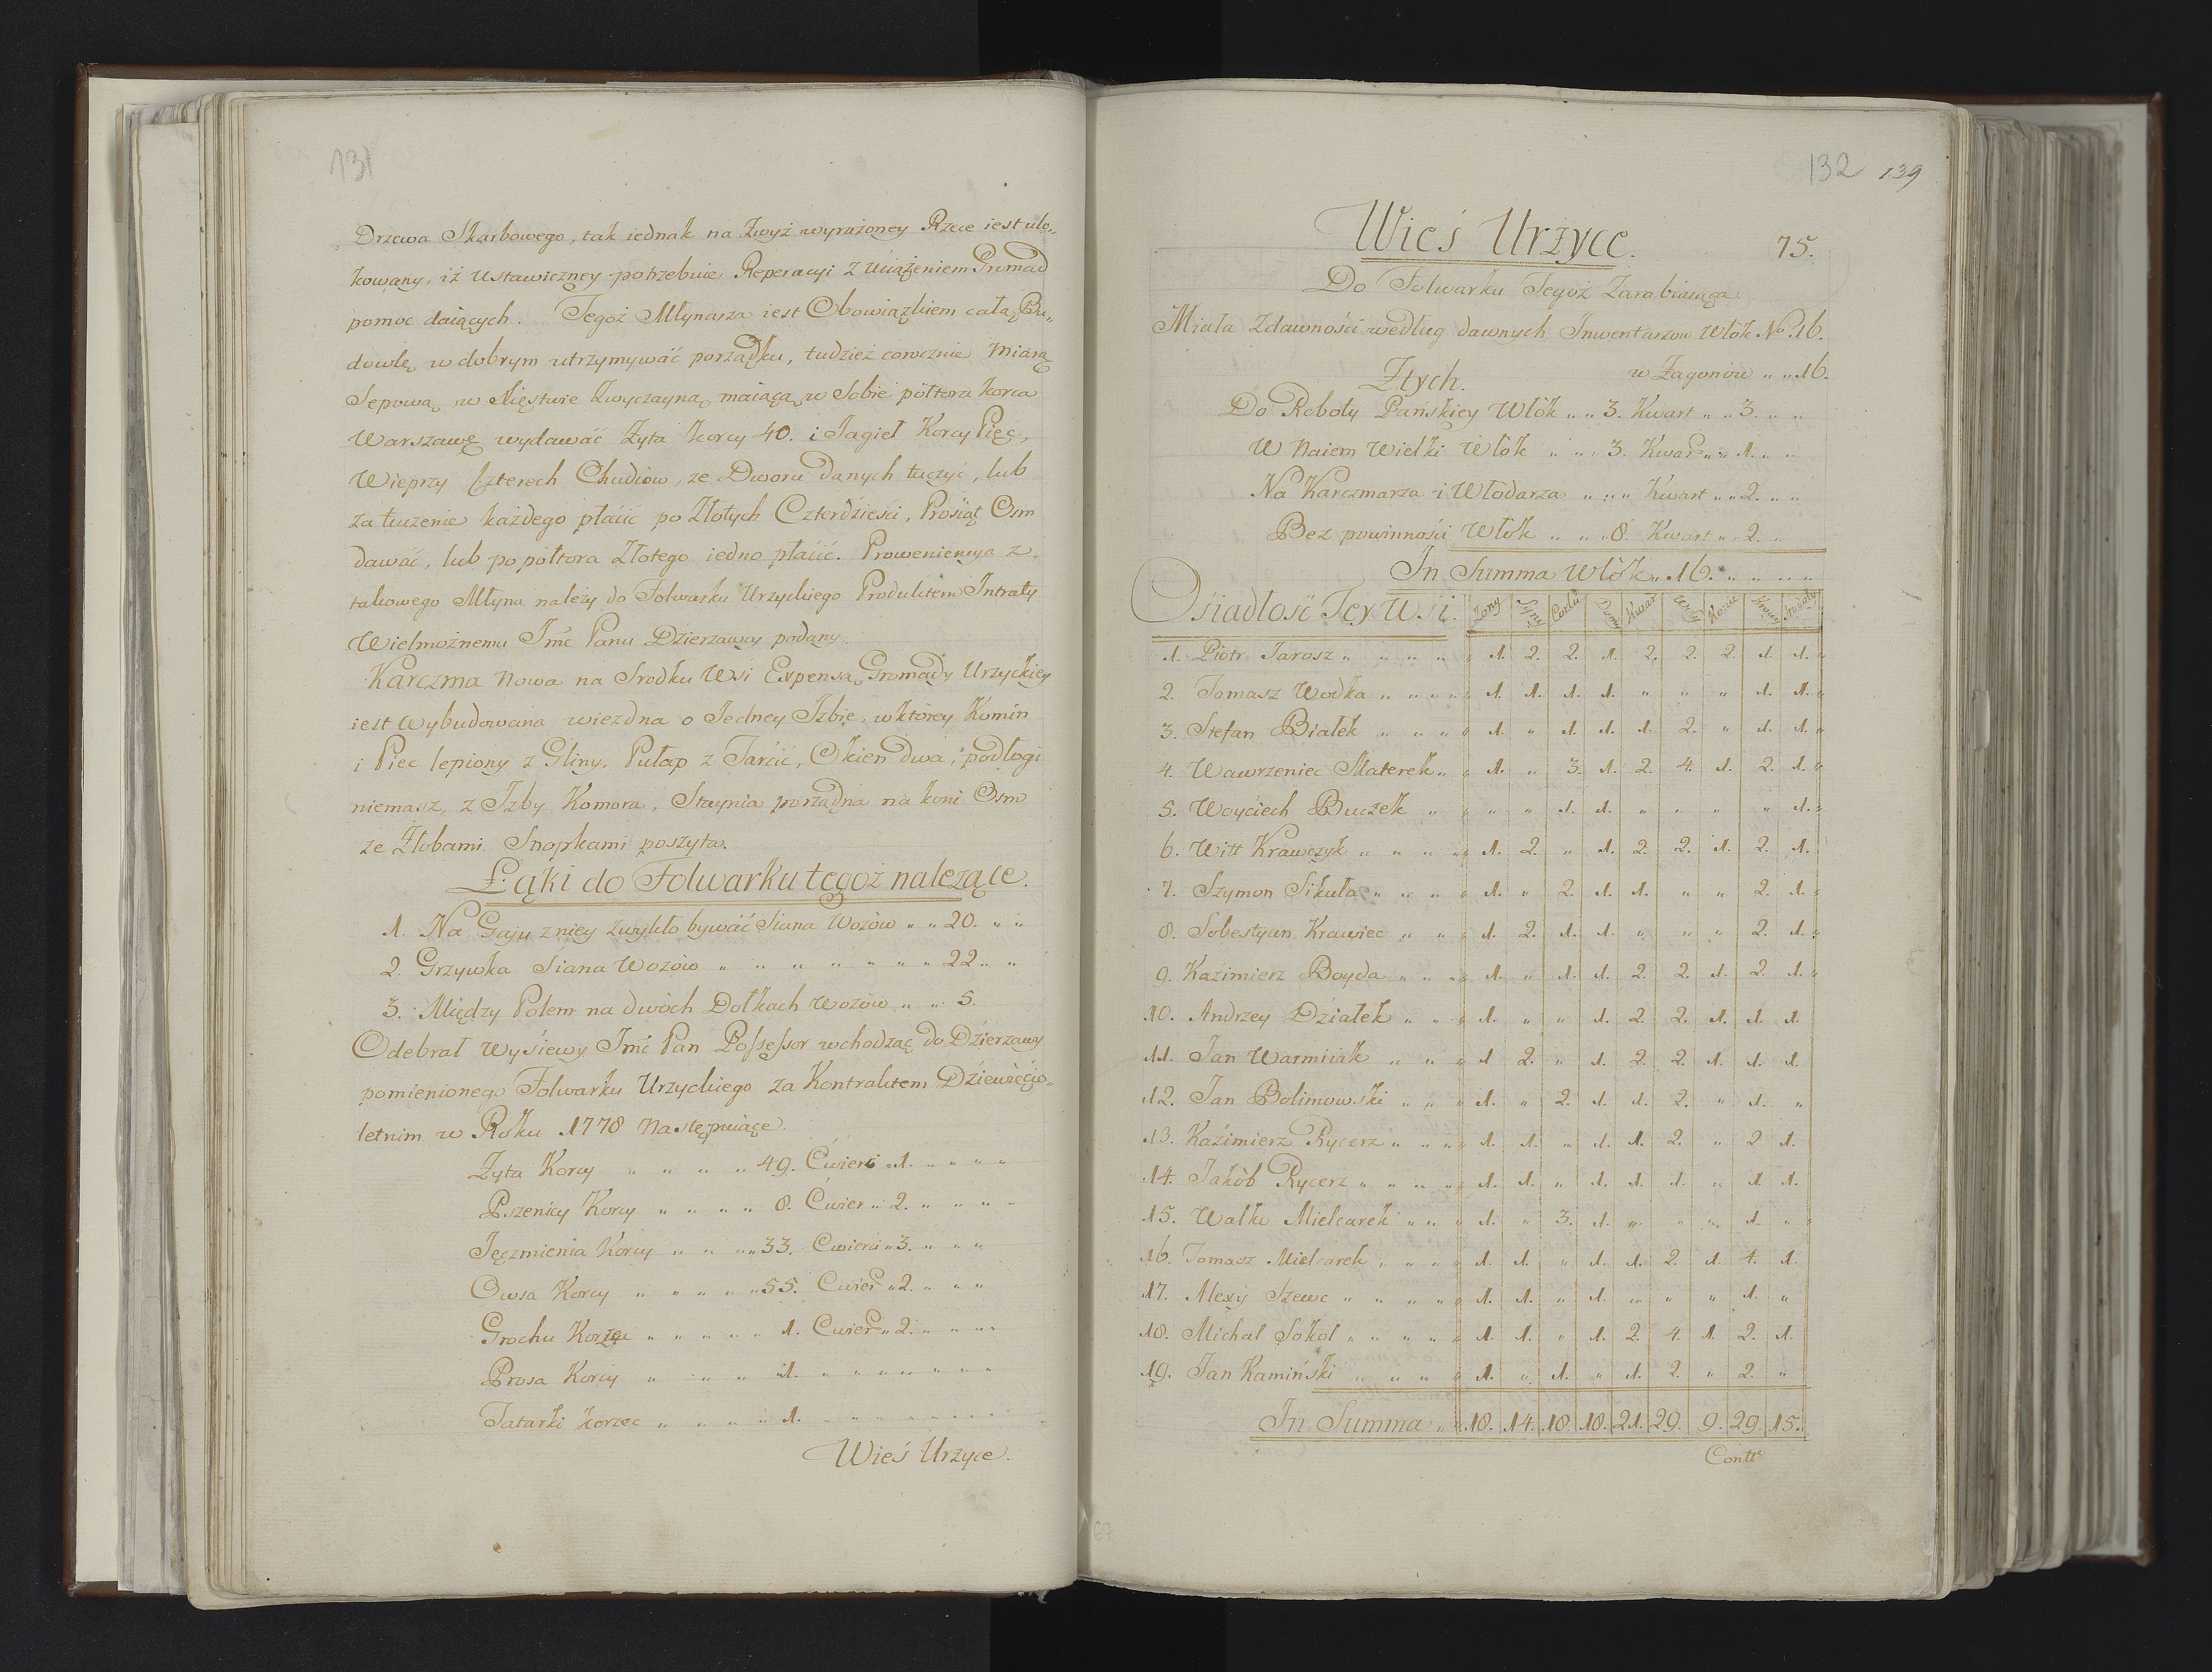 131
Drzewa Skarbowego, tak iednak na Zwyż wyrażoney Rzece iest ulo„
kowany, iż Ustawiczney potrzebuie Reperacyi z Uciążeniem Gromad
pomoc daiących. Tegoż Młynarza iest Obowiązkiem całą Bu„
dowlę w dobrym utrzymywać porządku, tudzież corocznie Miarą
Sepową w Xięstwie Zwyczayną maiącą w Sobie półtora korca
Warszawę wydawać Zyta korcy 40. i Jagieł Korcy Pięc,
Wieprzy Czterech Chudiow, ze Dworu danych tuczyć, lub
za tuczenie każdego płacić po Złotych Czterdzieści, Prosiąt Osm
dawać, lub po półtora Złotego iedno płacić. Proweniencya z„
takowego Młyna należy do Folwarku Urzyckiego Produktem Intraty
Wielmożnemu Jmc Panu Dzierzawcy podany.
Karczma Nowa na Srodku Wsi Expensą Gromady Urzyckiey
iest Wybudowana wiezdna o Jedney Jzbie, w którey Komin
i Piec lepiony z Gliny, Pułap z Tarcić, Okien dwa, podłogi
niemasz, z Jzby Komora, Staynia porządna na koni Osm
ze Żłobami Snopkami poszyta.
Łąki do Folwarku tegoż należące.
1. Na Gaju z niey Zwykło bywać Siana Wozów „ „ 20. „ „
2. Grzywka Siana Wozów „ „ „ „ „ „ „ 22 „ „
3. Między Polem na dwóch Dołkach Wozów „ „ 5.
Odebrał Wysiewy Jmć Pan Possessor wchodząc do Dzierzawy
pomienionego Folwarku Urzyckiego za Kontraktem Dziewięcio„
letnim w Roku 1778 Następuiące.
Zyta Korcy „ „ „ „ 49. Ćwierci „ 1. „ „ „ „
Pszenicy Korcy „ „ „ „ 8. Ćwier „ 2. „ „ „ „
Jęczmienia Korcy „ „ „ „ 33. Cwierci „ 3. „ „ „
Owsa Korcy „ „ „ „ „ 55. Cwier „ 2. „ „ „
Grochu Korzec „ „ „ „ „ 1. Cwier „ 2. „ „ „ „
Prosa Korcy „ „ „ „ 1. „ „ „ „ „ „ „
Tatarki korzec „ „ „ „ „ 1. „ „ „ „ „ „ „
Wieś Urzyce.
132 139
Wieś Urzyce. 75.
Do Folwarku Tegoż Zarabiaiąca
Miała Zdawności według dawnych Inwentarzow Włók No 16.
Ztych. w Zagonow „ „ 16.
Do Roboty Pańskiey Włók „ „ 3. Kwart „ „ 3. „ „
W Naiem Wielki Włók „ „ „ 3. Kwar „ „ 1. „ „
Na Karczmarza i Włodarza „ „ „ Kwart „ „ 2. „ „
Bez powinności Włók „ „ „ 8. Kwart „ „ 2. „
In Summa Włók „ 16. „ „ „ „ „
Osiadłość Tey Wsi. Zony Syny Corki Domy Kwar Woły Konie Krowy
1. Piotr Jarosz „ „ „ „ „ 1. 2. 2. 1. 2. 2. 2. 1. 1. „
2. Tomasz Wodka „ „ „ „ „ 1. 1. 1. 1. „ „ „ 1. 1. „
3. Stefan Białek „ „ „ „ 1. „ 1. 1. 1. 2. „ 1. 1. „
4. Wawrzeniec Materek „ „ 1. „ 3. 1. 2. 4. 1. 2. 1. „
5. Woyciech Buczek „ „ „ „ 1. 1. „ „ „ „ 1. „
6. Witt Krawczyk „ „ „ „ „ 1. 2. „ 1. 2. 2. 1. 2. 1.
7. Szymon Sikuła „ „ „ „ 1. „ 2. 1. 1. „ „ 2. 1. „
8. Sobestyan Krawiec „ „ „ 1. 2. 1. 1. „ „ „ 2. 1. „
9. Kaźimierz Boyda „ „ „ „ 1. „ 1. 1. 2. 2. 1. 2. 1. „
10. Andrzey Dzialek „ „ „ 1. „ „ 1. 2. 2. 1. 1. 1.
11. Jan Warmiiak „ „ „ 1 2. „ 1. 2. 2. 1. 1. 1.
12. Jan Bolimowski „ „ „ 1. „ 2. 1. 1. 2. „ 1. „
13. Kaźimierz Rycerz „ „ „ „ 1. 1. „ 1. 1. 2. „ 2 1.
14. Jakòb Rycerz „ „ „ „ „ 1. 1. „ 1. 1. 1. „ 1. 1.
15. Walk Mielcarek „ „ „ 1. „ 3. 1. „ „ „ 1. „
16. Tomasz Mielcarek „ „ „ „ 1. 1. „ 1. 1. 2. 1. 4. 1.
17. Alexy Szewc „ „ „ „ „ 1. 1. „ 1. „ „ „ 1. „
18. Michał Sokół „ „ „ „ „ 1. 1. „ 1. 2. 4. 1. 2. 1.
19. Jan Kamiński „ „ „ „ 1. „ 1. „ 1. 2. „ 2. „
In Summa „ 18. 14. 18. 18. 21. 29. 9. 29. 15.
Contt
67